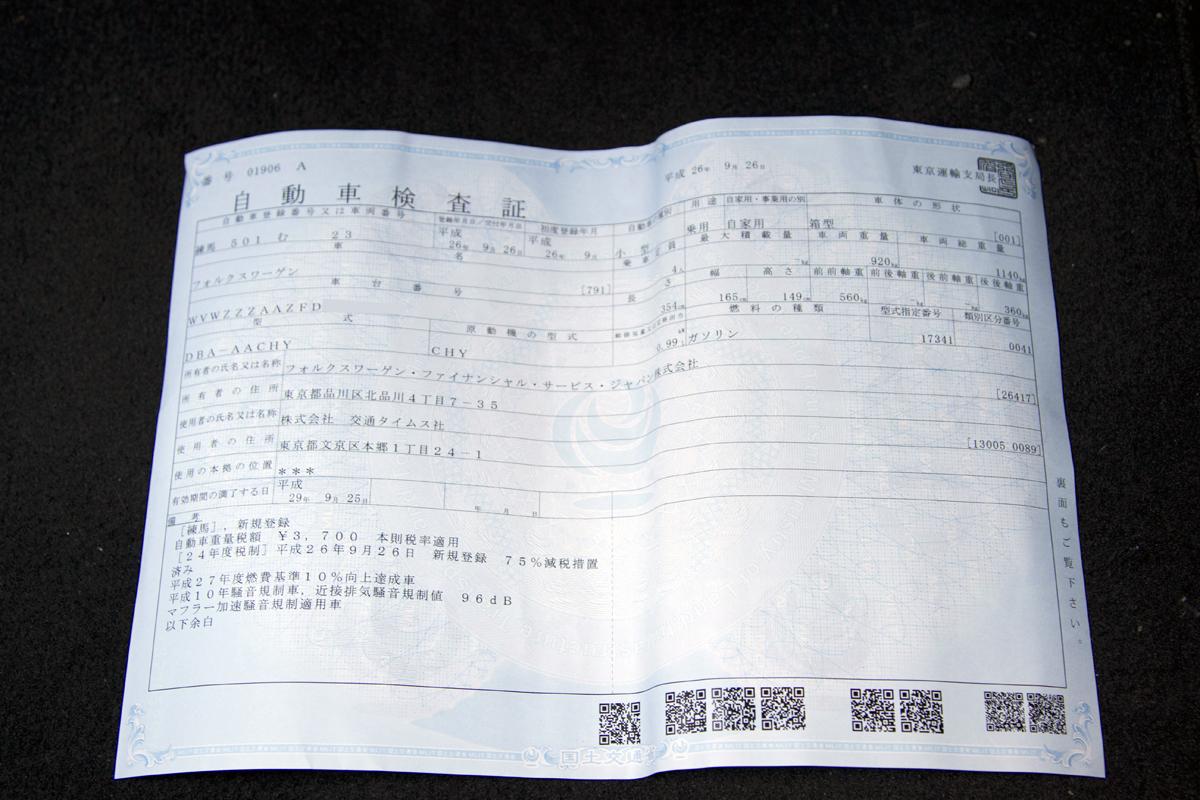 番号 01906 A
平成 26年 9月 26日
東京運輸支局長
自動車検査証
自動車登録番号又は車両番号 登録年月日/交付年月日 初度登録年月 用途 自家用・事業用の別 車体の形状
練馬 501 む 23 平成 26年 9月 26日 平成 26年 9月 小型 乗用 自家用 箱型 [001]
車名 乗車定員 最大積載量 車両重量 車両総重量
フォルクスワーゲン [791] 4人 -kg 920kg 1140kg
車台番号 長さ 幅 高さ 前前軸重 前後軸重 後前軸重 後後軸重
WVWZZZAAZFD 354cm 165cm 149cm 560kg -kg -kg 360kg
型式 原動機の型式 燃料の種類 型式指定番号 類別区分番号
DBA-AACHY CHY 0.99 ガソリン 17341 0041
所有者の氏名又は名称 フォルクスワーゲン・ファイナンシャル・サービス・ジャパン株式会社
所有者の住所 東京都品川区北品川4丁目7-35 [26417]
使用者の氏名又は名称 株式会社 交通タイムス社
使用者の住所 東京都文京区本郷1丁目24-1 [13005 0089]
使用の本拠の位置 ***
有効期間の満了する日 平成 29年 9月 25日 年 月 日
備考
[練馬], 新規登録
自動車重量税額 ¥3,700 本則税率適用
[24年度税制] 平成26年9月26日 新規登録 75%減税措置
済み
平成27年度燃費基準10%向上達成車
平成10年騒音規制車, 近接排気騒音規制値 96dB
マフラー加速騒音規制適用車
以下余白
裏面もご覧下さい。
国土交通